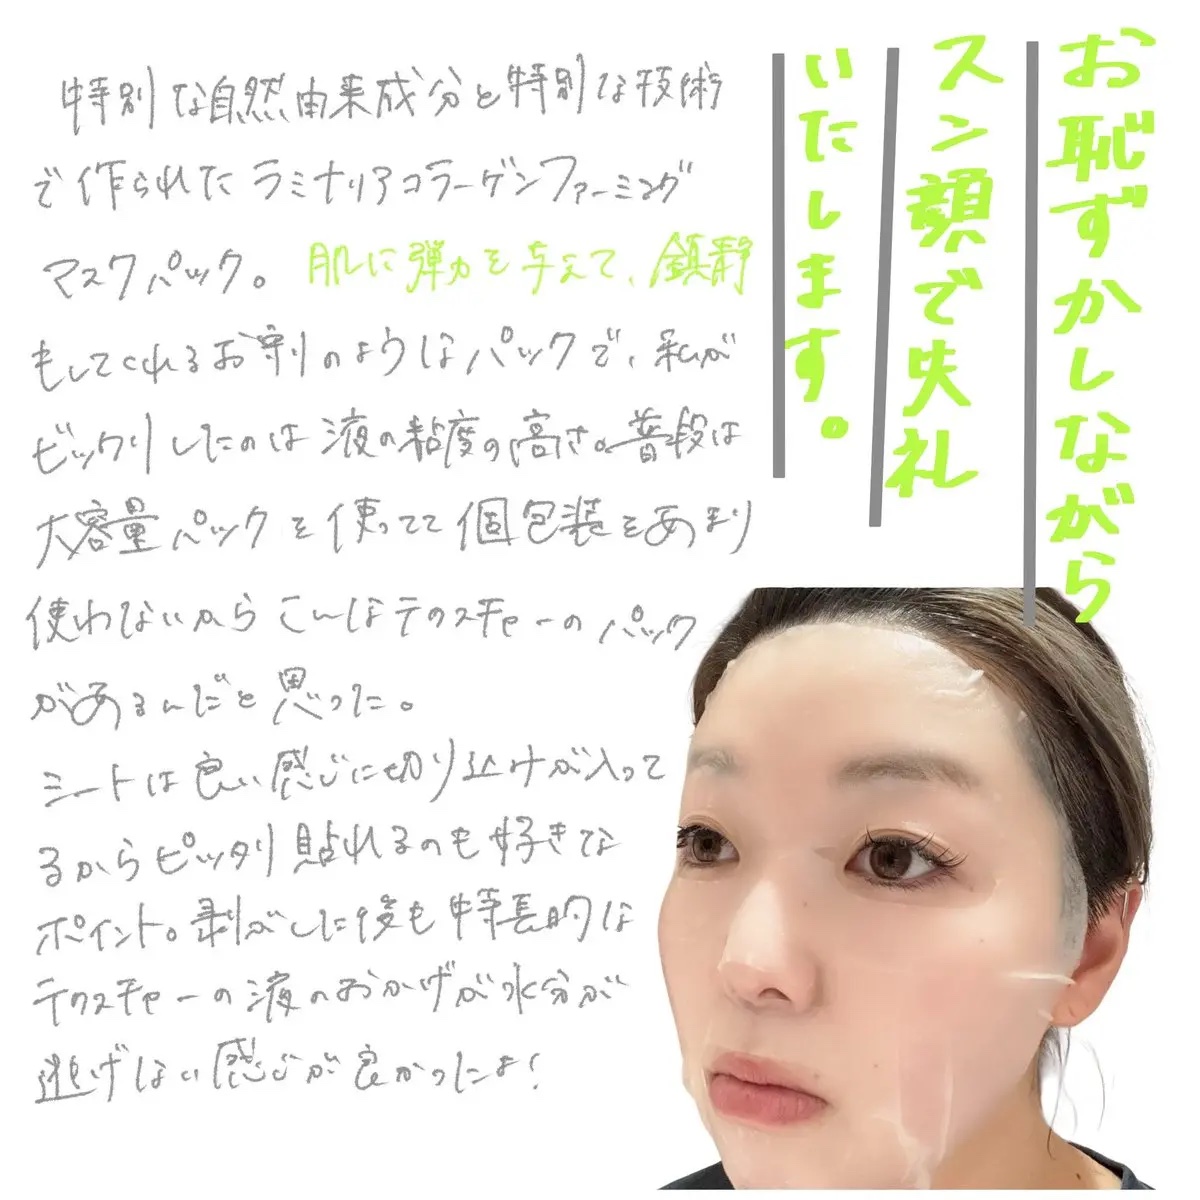 お恥ずかしながら
スン顔で失礼
いたします。
特別な自然由来成分と特別な技術
で作られたラミナリアコラーゲンファーミング
マスクパック。肌に弾力を与えて、鎮静
もしてくれるお守りのようなパックで、私が
ビックリしたのは液の粘度の高さ。普段は
大容量パックを使ってて個包装をあまり
使わないからこんなテクスチャーのパック
があるんだと思った。
シートは良い感じに切り込みが入って
るからピッタリ貼れるのも好きな
ポイント。剥がした後も特長的な
テクスチャーの液のおかげか水分が
逃げない感じが良かったよ!